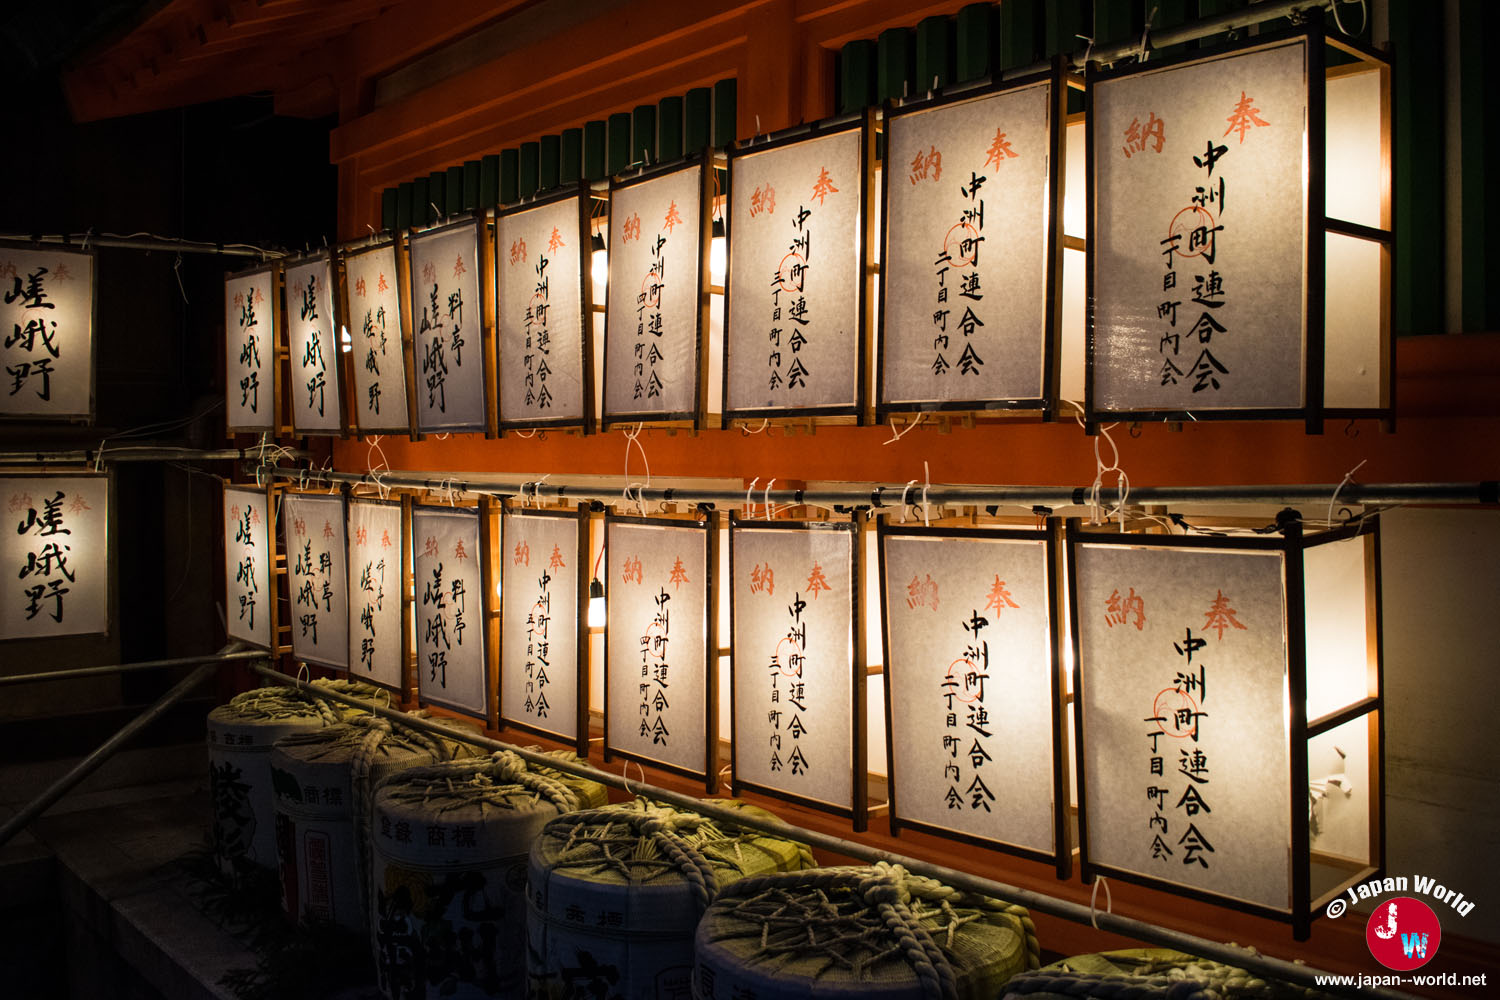 奉納
中洲町連合会
一丁目町内会
奉納
中洲町連合会
二丁目町内会
奉納
中洲町連合会
三丁目町内会
奉納
中洲町連合会
四丁目町内会
奉納
中洲町連合会
五丁目町内会
奉納
料亭
嵯峨野
奉納
料亭
嵯峨野
奉納
嵯峨野
奉納
嵯峨野
奉納
嵯峨野
奉納
中洲町連合会
一丁目町内会
奉納
中洲町連合会
二丁目町内会
奉納
中洲町連合会
三丁目町内会
奉納
中洲町連合会
四丁目町内会
奉納
中洲町連合会
五丁目町内会
奉納
料亭
嵯峨野
奉納
料亭
嵯峨野
奉納
料亭
嵯峨野
奉納
嵯峨野
奉納
嵯峨野
商標
登録商標
九州
商標
© Japan World
JW
www.japan--world.net